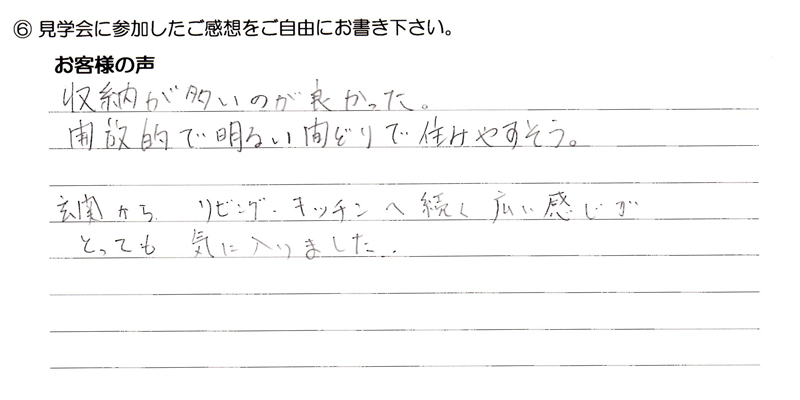 ⑥ 見学会に参加したご感想をご自由にお書き下さい。
お客様の声
収納が多いのが良かった。
開放的で明るい間どりで住みやすそう。
玄関から リビング・キッチンへ続く広い感じが
とっても 気に入りました.